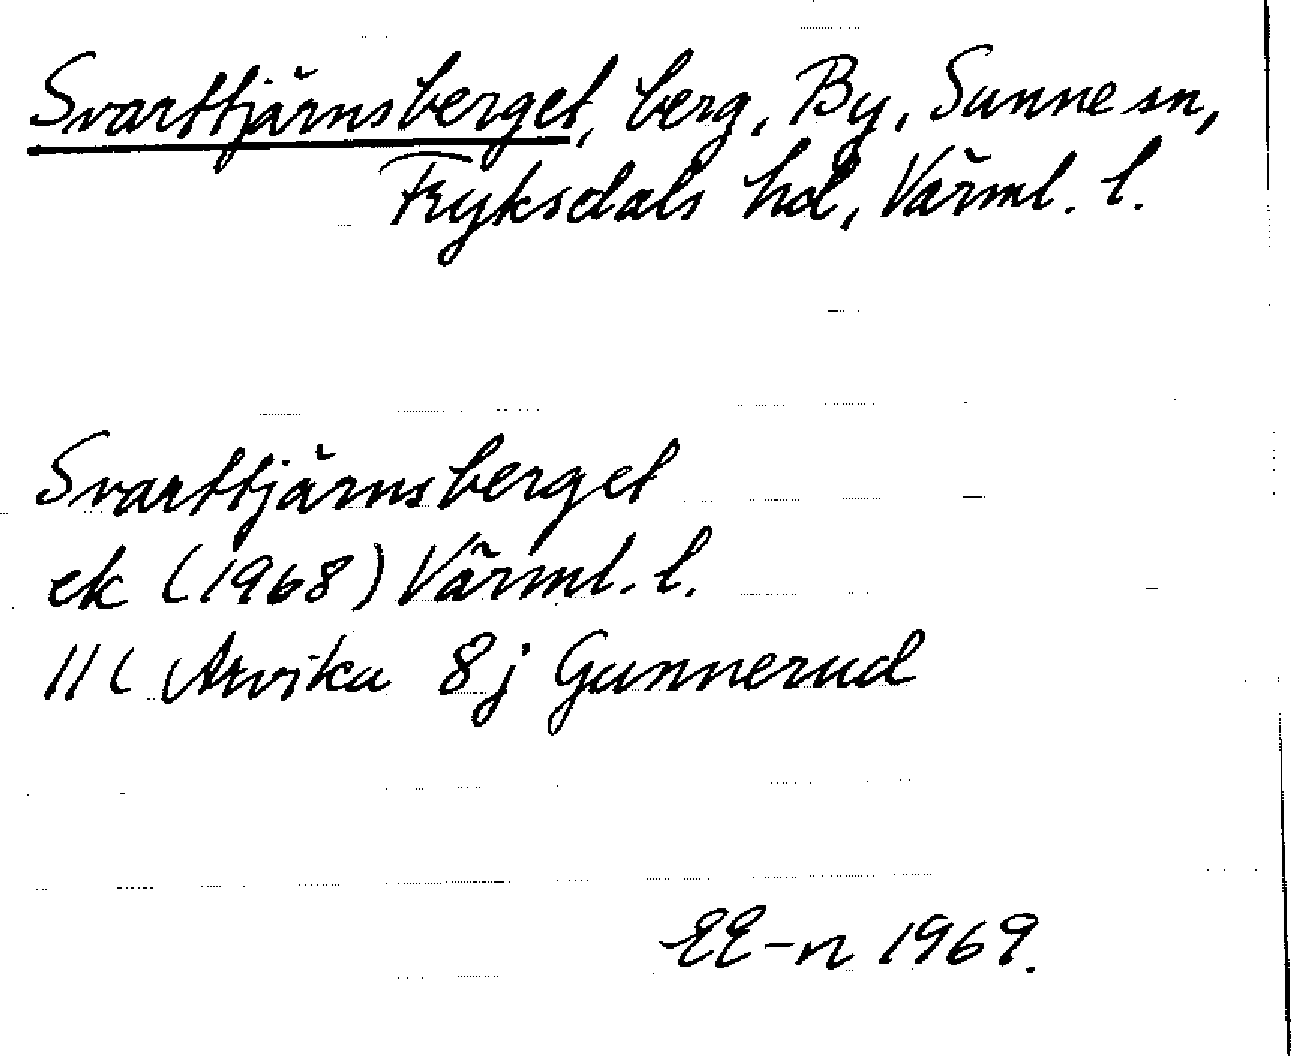 Svarttjärnsberget, berg, By, Sunne sn,
Fryksdals hd, Värml. l.
Svarttjärnsberget
ek (1968) Värml. l.
11C Arvika 8j Gunnerud
EE-n 1969.